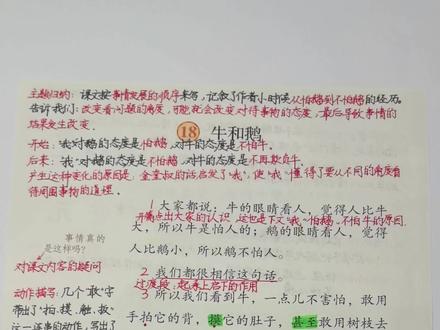 主题归纳：课文按事情发展的顺序来写，记叙了作者小时候从怕鹅到不怕鹅的经历。
告诉我们：改变看问题的角度，可能就会改变对待事物的态度，最后导致事情的
结果发生改变．
18 牛和鹅
开始："我"对鹅的态度是怕鹅，对牛的态度是不怕牛．
后来："我"对鹅的态度是不怕鹅，对牛的态度是不再欺负牛．
产生这种变化的原因是：金奎叔的话启发了"我"，使"我"懂得了要从不同的角度看
待周围事物的道理．
1 大家都说：牛的眼睛看人，觉得人比牛
开篇点出大家的认识，这也是下文"我"怕鹅、不怕牛的原因．
大，所以牛是怕人的；鹅的眼睛看人，觉得
人比鹅小，所以鹅不怕人。
事情真的
是这样吗？
对课文内容的疑问
2 我们都很相信这句话。
过渡段，起承上启下的作用
3 所以我们看到牛，一点儿不害怕，敢用
手拍它的背，摸它的肚子，甚至敢用树枝去
动作描写：几个"敢"字
带出了"拍、摸、触、救"
这一连串的动作，写出了